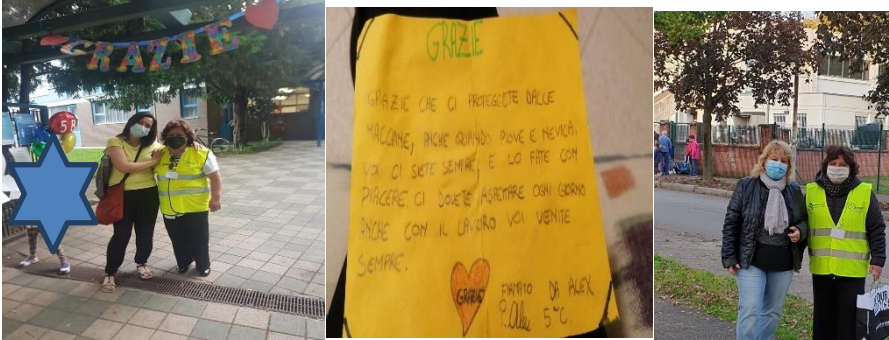 GRAZIE
5B
GRAZIE
GRAZIE CHE CI PROTEGGETE DALLE
MACCHINE, ANCHE QUANDO PIOVE E NEVICA.
VOI CI SIETE SEMPRE, E LO FATE CON
PIACERE, CI DOVETE ASPETTARE OGNI GIORNO
ANCHE CON IL LAVORO VOI VENITE
SEMPRE.
GRAZIE
FIRMATO DA ALEX
5°C.